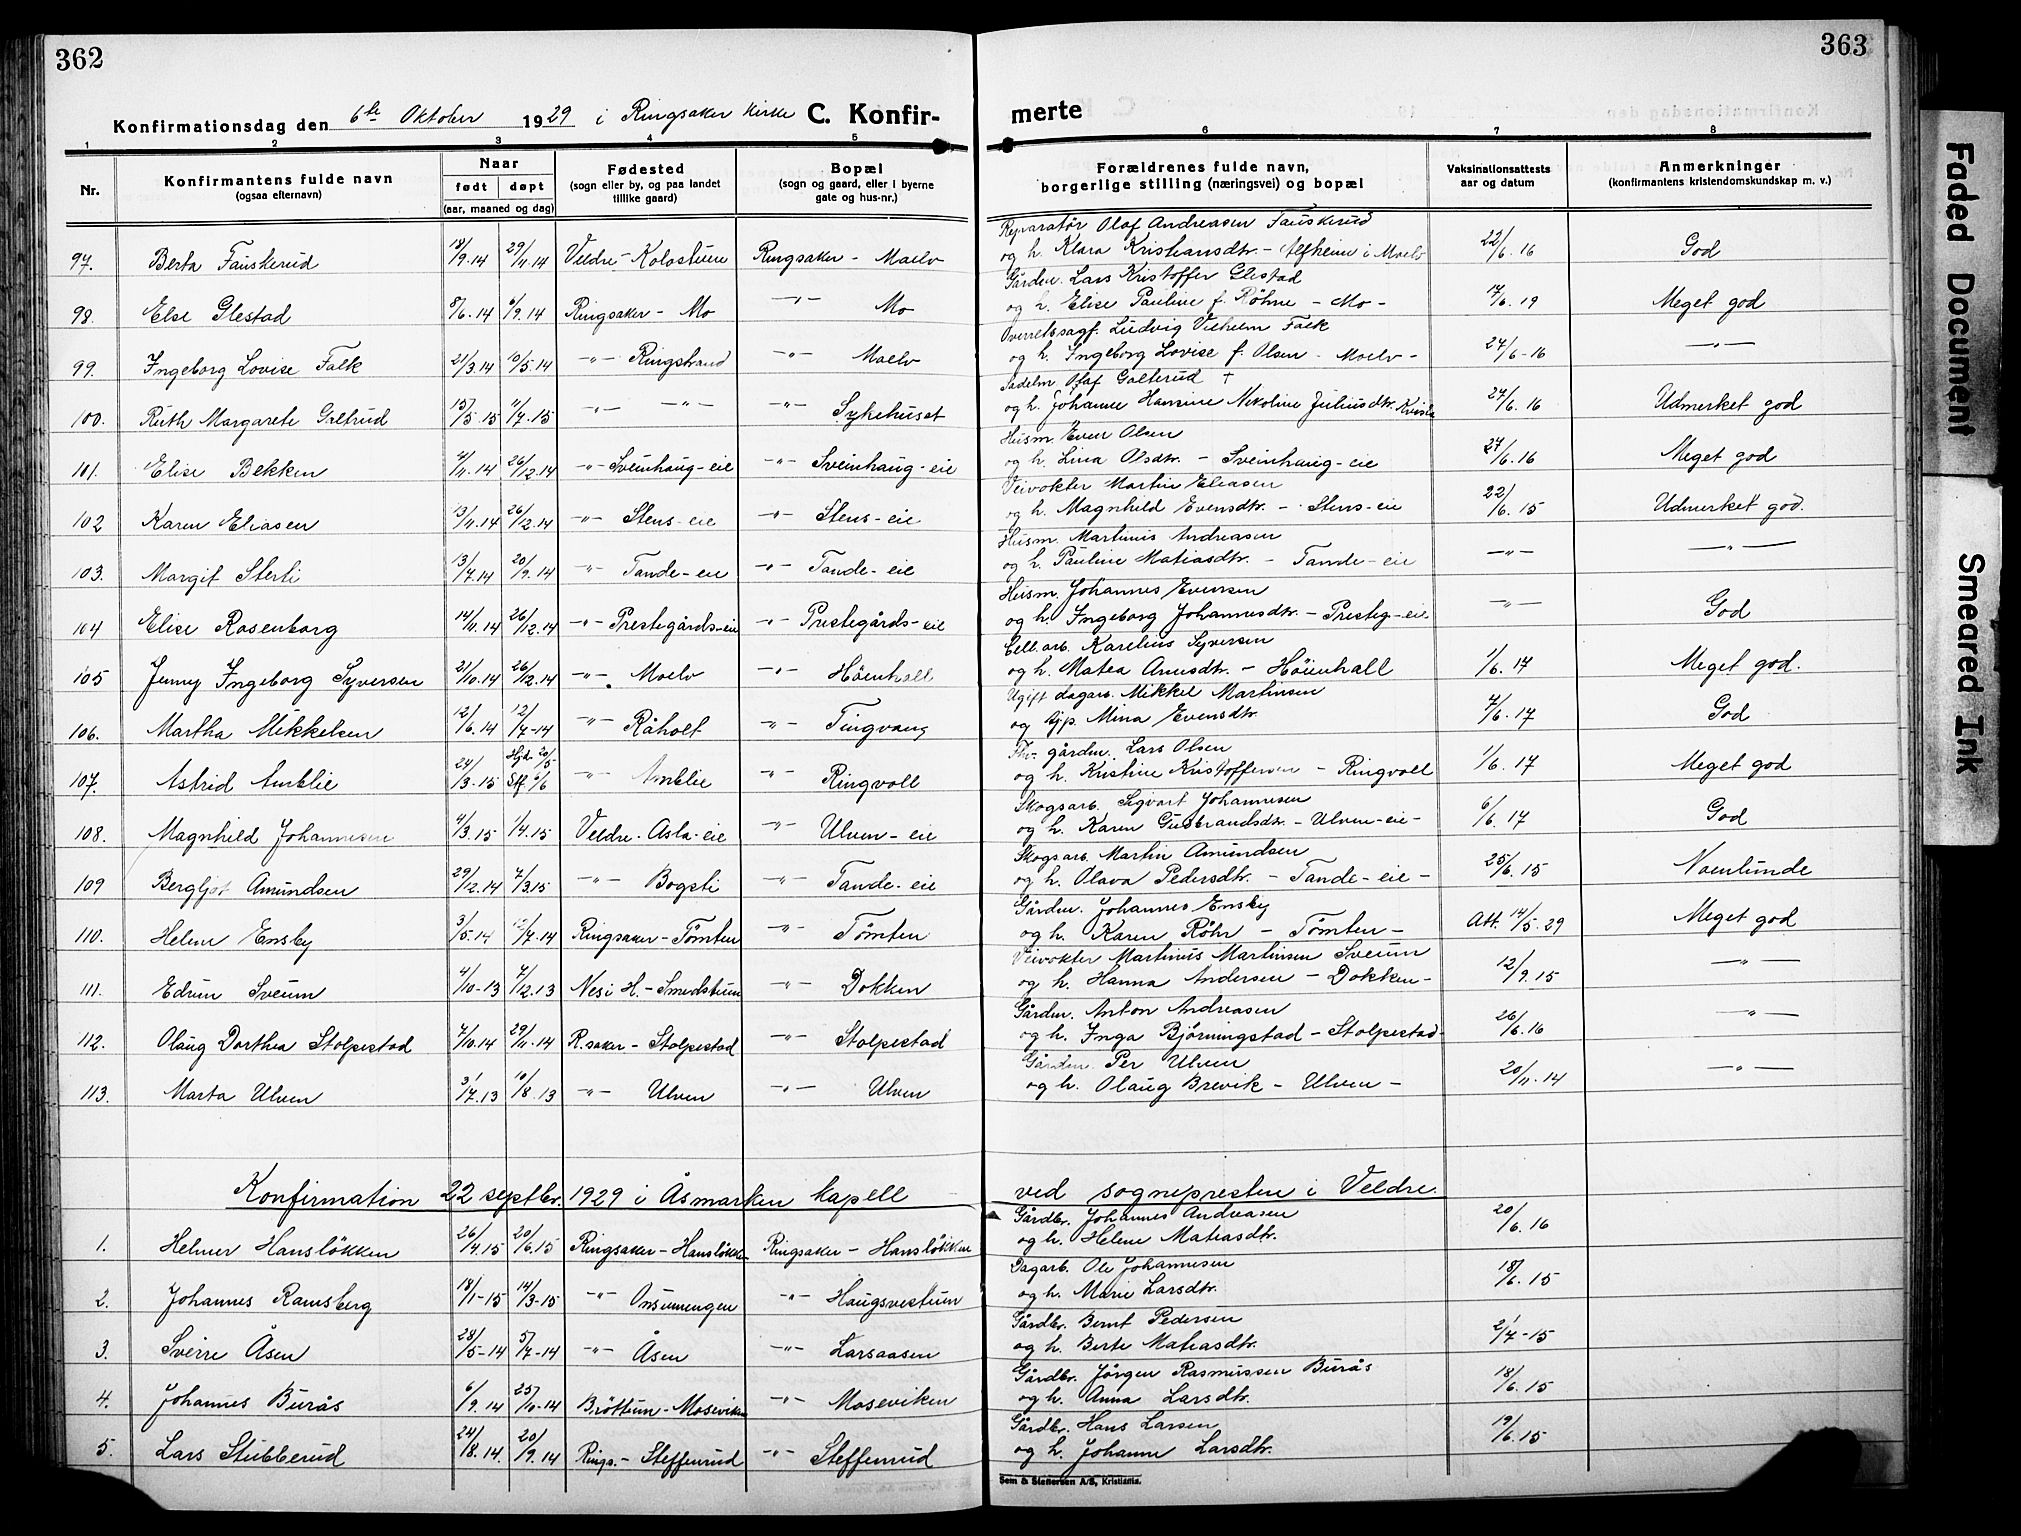 362
363
Konfirmationsdag den 6te Oktober 1929 i Ringsaker kirke C. Konfir-
merte
1 2 3 4 5 6 7 8
Nr. Konfirmantens fulde navn (ogsaa efternavn) Naar født døpt (aar, maaned og dag) Fødested (sogn eller by, og paa landet tillike gaard) Bopæl (sogn og gaard, eller i byerne gate og hus-nr.) Forældrenes fulde navn, borgerlige stilling (næringsvei) og bopæl Vaksinationsattests aar og datum Anmerkninger (konfirmantens kristendomskundskap m. v.)
Reparatør Olaf Andreasen Fauskerud
97. Berta Fauskerud 18/9.14 29/11.14 Veldre - Kolostuen Ringsaker - Moelv og h. Klara Kristiansdtr. - Alfheim i Moelv 22/6.16 God
Gårdbr. Lars Kristoffer Glestad
98. Else Glestad 8/6.14 6/9.14 Ringsaker - Mo -"- Mo og h. Elise Pauline f. Røhne - Mo - 17/6.19 Meget god
Overretssagf. Ludvig Vilhelm Falk
99. Ingeborg Lovise Falk 21/3.14 10/5.14 -"- Ringstrand -"- Moelv og h. Ingeborg Lovise f. Olsen - Moelv - 24/6-16 -"-
Sadelm. Olaf Galterud +
100. Ruth Margarete Galtrud 15/5.15 11/7.15 -"- -"- Sykehuset og h. Johanne Hansine Nikoline Juliusdtr. 27/6.16 Udmerket god
Husm. Even Olsen
101. Elise Bekken 4/11.14 26/12.14 -"- Sveinhaug-eie -"- Sveinhaug-eie og h. Lina Olsdtr. - Sveinhaug-eie 27/6.16 Meget god
Veivokter Martin Eliasen
102 Karen Eliasen 13/11.14 26/12.14 -"- Stens-eie -"- Stens-eie og h. Magnhild Evensdtr. - Stens-eie 22/6.15 Udmerket god.
Husm. Martinus Andreasen
103. Margit Sterti 13/7.14 20/9.14 -"- Tande-eie -"- Tande-eie og h. Pauline Matiasdtr. - Tande-eie -"- -"-
Husm. Johannes Evensen
104 Elise Rosenborg 14/11.14 26/12.14 -"- Prestegårds-eie -"- Prestegårds-eie og h. Ingeborg Johannesdtr. - Presteg-eie -"- God
Cell.arb. Karelius Syversen
105 Jenny Ingeborg Syversen 21/10.14 26/12.14 -"- Moelv -"- Høienhall og h. Matea Arnesdtr. - Høienhall 1/6.17 Meget god.
Ugift dagarb. Mikkel Martinsen
106. Martha Mikkelsen 12/6.14 12/7-14 -"- Råholt -"- Tingvang og pp. Mina Evensdtr. 7/6.17 God
Fhv. gårdbr. Lars Olsen
107. Astrid Amlie 24/3.15 Hjd. 20/5 St. 6/6 -"- Amlie -"- Ringvoll og h. Kristine Kristoffersen - Ringvoll 1/6.17 Meget god
Skogsarb. Sigvart Johannesen
108. Magnhild Johannesen 4/3.15 1/4.15 Veldre - Asla-eie -"- Ulven-eie og h. Karen Gudbrandsdtr. - Ulven-eie - 6/6.17 God
Skogsarb. Martin Amundsen
109 Bergljot Amundsen 29/12.14 7/3.15 -"- Bogsti -"- Tande-eie og h. Olava Pedersdtr. - Tande-eie - 25/6.15 Noenlunde
Gårdbr. Johannes Ensby
110. Helene Ensby 3/5.14 12/7.14 Ringsaker - Tømten -"- Tømten og h. Karen Røhr - Tømten - Att. 14/5.29 Meget god
Veivokter Martinus Martinsen Sveum
111. Edrun Sveum 4/10-13 7/12.13 Nes i H. - Smedstuen -"- Dokken og h. Hanna Andersen - Dokken - 12/9.15 -"-
Gårdbr. Anton Andreasen
112. Olaug Dorthea Stolpestad 7/10.14 29/11.14 R.saker - Stolpestad -"- Stolpestad og h. Inga Bjørningstad - Stolpestad- 26/6.16 -"-
Gårdbr. Per Ulven
113. Marta Ulven 31/7.13 10/8.13 -"- Ulven -"- Ulven og h. Olaug Brevik - Ulven - 20/11.14 -"-
Konfirmation 22 septbr. 1929 i Åsmarken kapell ved sognepresten i Veldre.
Gårdbr. Johannes Andreasen
1. Helmer Hansløkken 26/4.15 20/6.15 Ringsaker - Hansløkk. Ringsaker - Hansløkken og h. Helene Matiasdtr. 20/6.16
Dagarb. Ole Johannesen
2. Johannes Ramsberg 18/1-15 14/3-15 -"- Onsumengen -"- Haugsvestum og h. Marie Larsdtr. 18/6.15
Gårdbr. Bernt Pedersen
3. Sverre Åsen 28/5-14 5/7-14 -"- Åsen -"- Larsaasen og h. Berte Matiasdtr. 21/7-15
Gårdbr. Jørgen Rasmussen Burås
4. Johannes Burås 6/9.14 25/10-14 Brøttum - Moseviken -"- Moseviken og h. Anna Larsdtr. 18/6.15
Gårdbr. Hans Larsen
5. Lars Stubberud 24/8.14. 20/9.14 Rings. - Steffenrud -"- Steffenrud og h. Johanne Larsdtr. 19/6.15
Sem & Stenersen A/S, Kristiania.
Faded Document
Smeared Ink